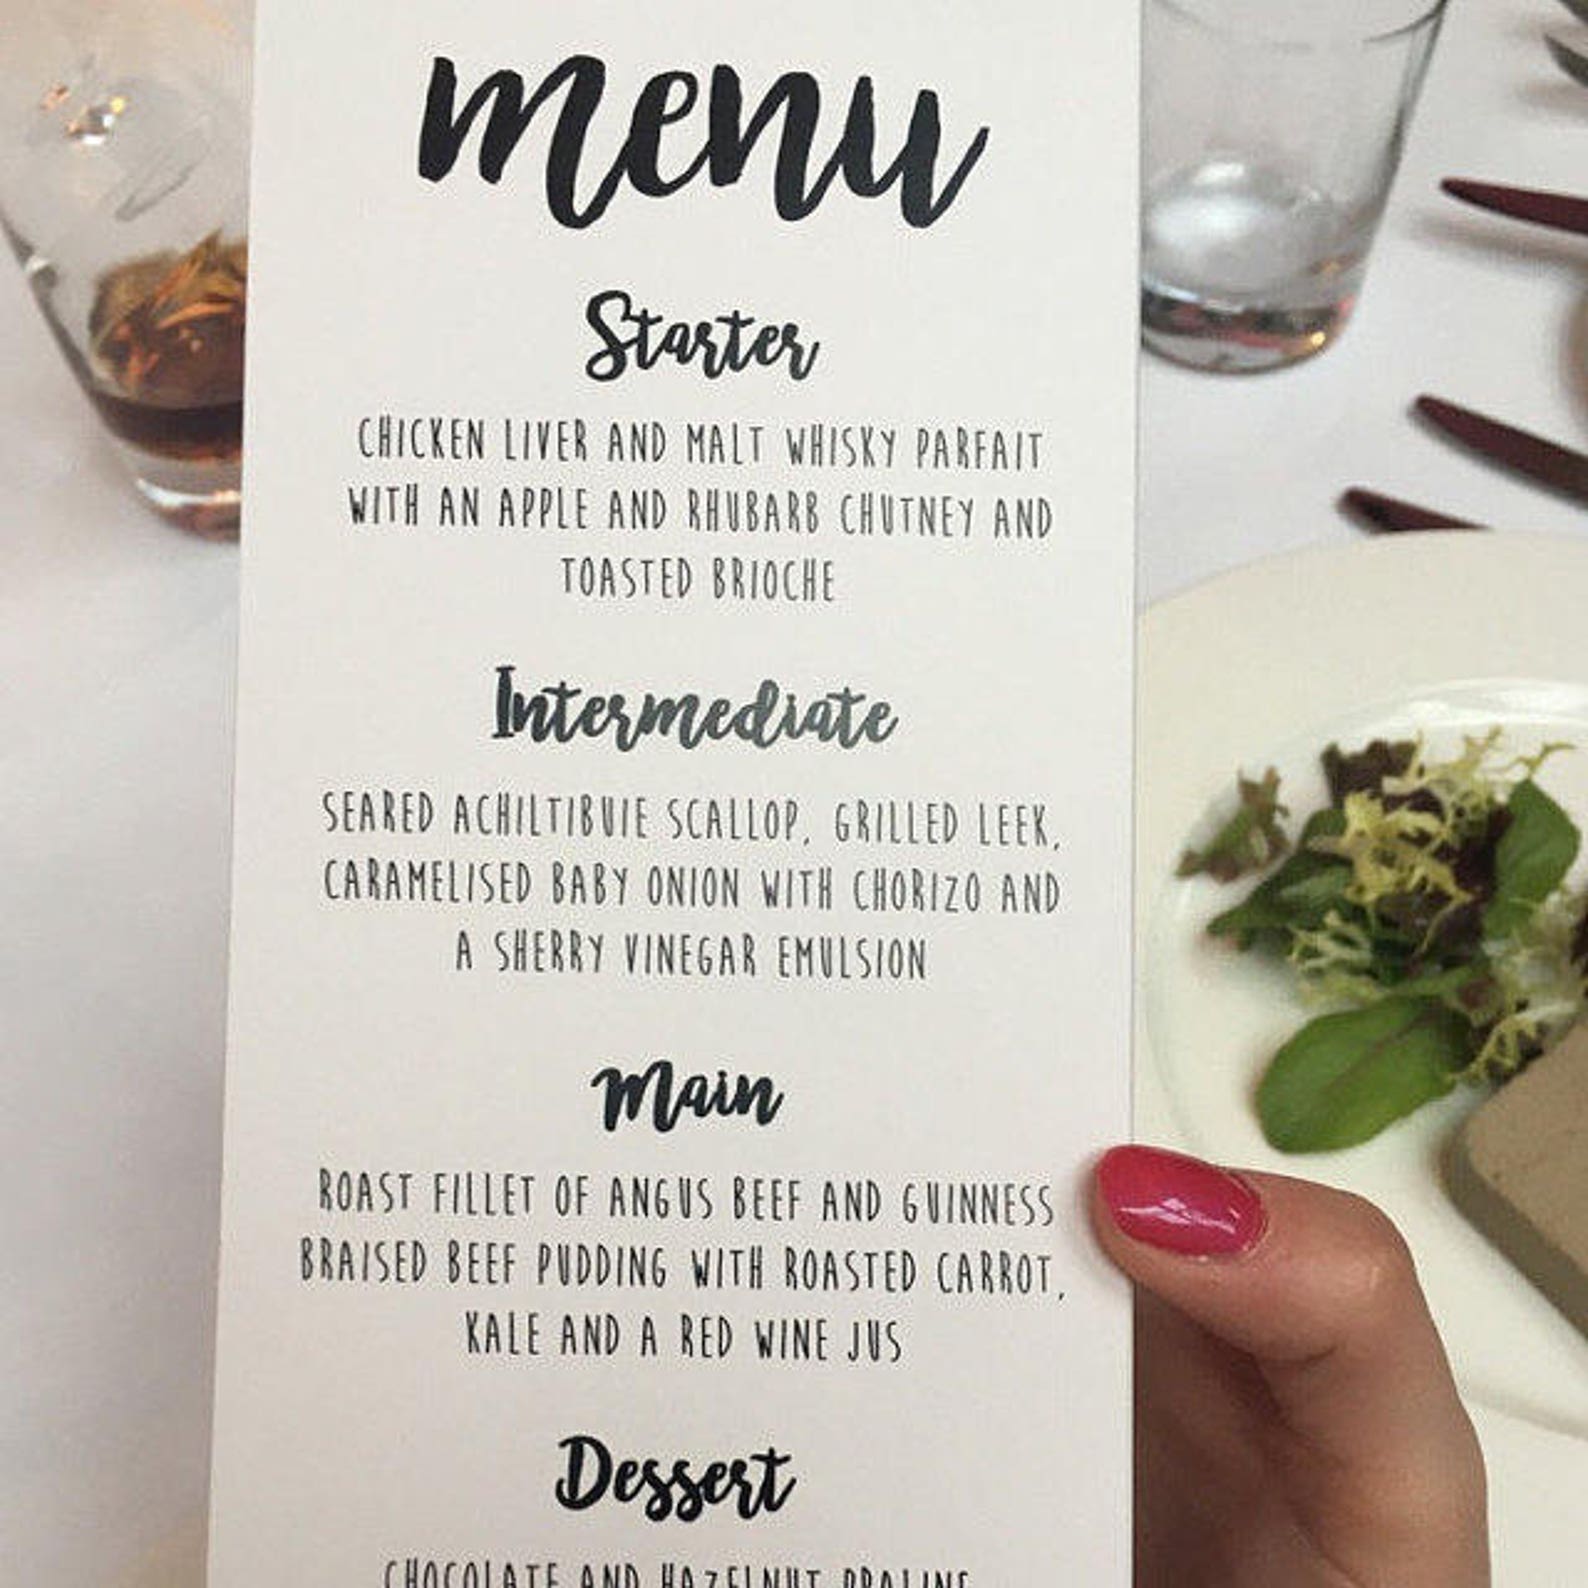 menu
Starter
CHICKEN LIVER AND MALT WHISKY PARFAIT
WITH AN APPLE AND RHUBARB CHUTNEY AND
TOASTED BRIOCHE
Intermediate
SEARED ACHILTIBUIE SCALLOP, GRILLED LEEK,
CARAMELISED BABY ONION WITH CHORIZO AND
A SHERRY VINEGAR EMULSION
Main
ROAST FILLET OF ANGUS BEEF AND GUINNESS
BRAISED BEEF PUDDING WITH ROASTED CARROT,
KALE AND A RED WINE JUS
Dessert
CHOCOLATE AND HAZELNUT PRALINE